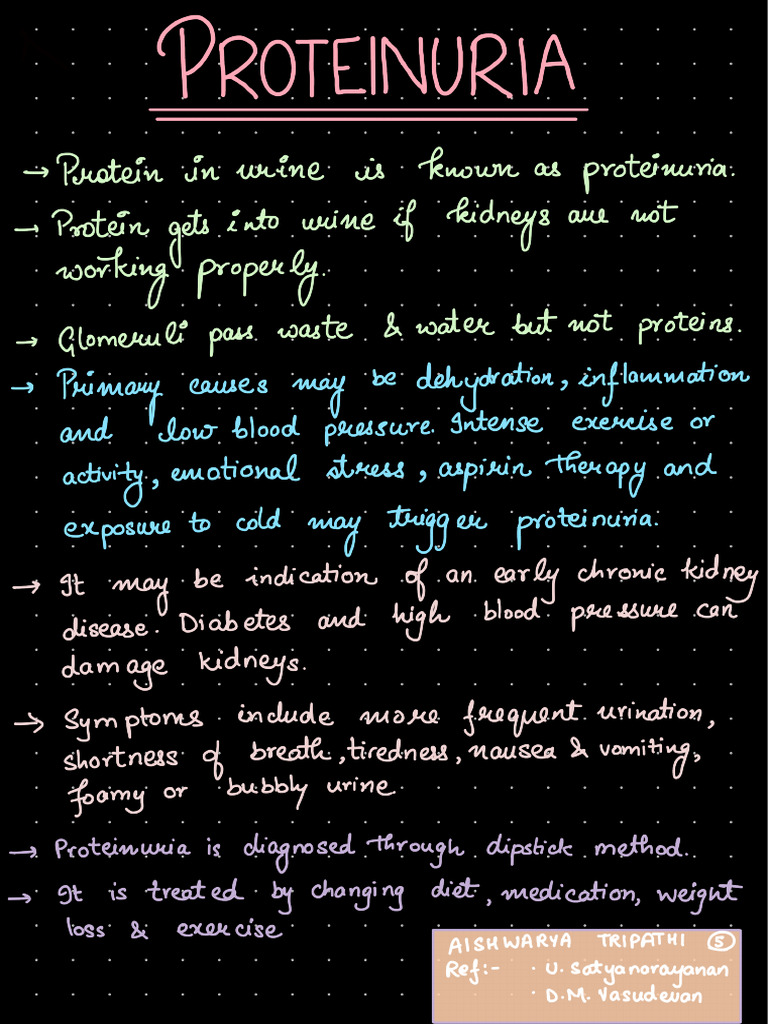 PROTEINURIA
→ Protein in urine is known as proteinuria.
→ Protein gets into urine if kidneys are not
working properly.
→ Glomeruli pass waste & water but not proteins.
→ Primary causes may be dehydration, inflammation
and low blood pressure. Intense exercise or
activity, emotional stress, aspirin therapy and
exposure to cold may trigger proteinuria.
→ It may be indication of an early chronic kidney
disease. Diabetes and high blood pressure can
damage kidneys.
→ Symptoms include more frequent urination,
shortness of breath, tiredness, nausea & vomiting,
foamy or bubbly urine
→ Proteinuria is diagnosed through dipstick method.
→ It is treated by changing diet, medication, weight
loss & exercise
AISHWARYA TRIPATHI 5
Ref:- · U. Satyanarayanan
· D.M. Vasudevan